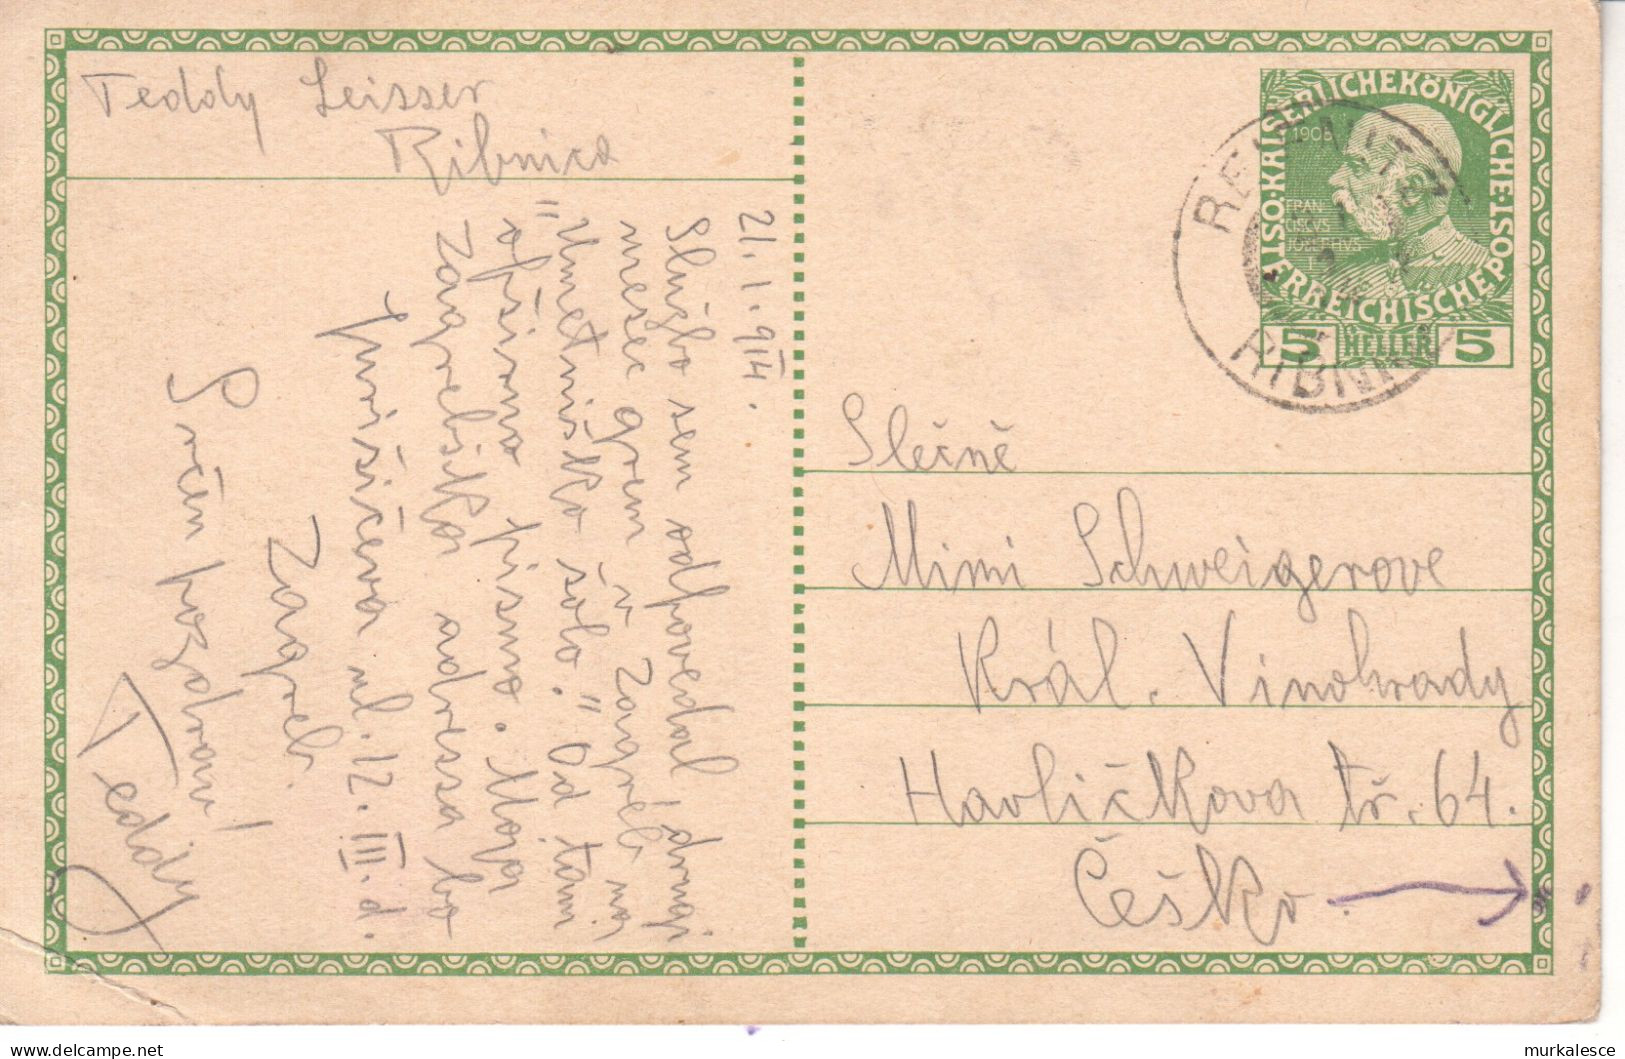 Teddy Leisser
Ribnica
21. I. 914.
Službo sem odpovedal, drugi
mesec grem v Zagreb na
"Umetniško šolo." Od tam
opširno pismo. Moja
zagrebška adressa bo
Jurišićeva ul. 12. III. d.
Zagreb.
Srčen pozdrav!
Teddy
KAISERLICHEKÖNIGLICHE
ÖSTERREICHISCHEPOST
1908
FRAN
CISCVS
JOSEPHVS
I
5 HELLER 5
REIFNITZ
RIBNICA
Slečně
Mimi Schweigerove
Král. Vinohrady
Havličkova tř. 64.
Češko
murkalesce